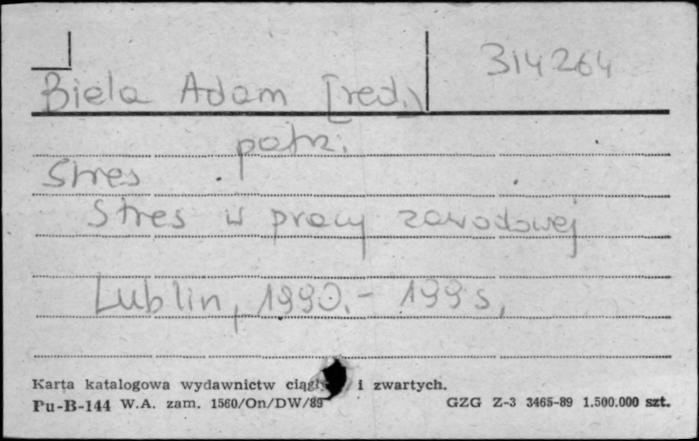 314264
Biela Adam [red.]
patrz.
Stres
Stres w pracy zawodowej
Lublin, 1990.- 199s,
Karta katalogowa wydawnictw i zwartych.
Pu-B-144 W.A. zam. 1560/On/DW/89 GZG Z-3 3465-89 1.500.000 szt.